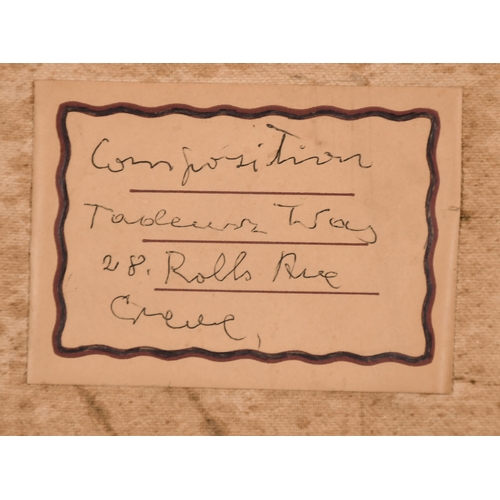 Composition
Tadeusz Was
28. Rolls Ave
Crewe,